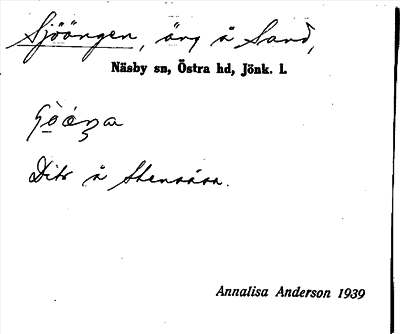 Sjöängen, äng å Sand,
Näsby sn, Östra hd, Jönk. l.
Dito å Stensåsa.
Annalisa Anderson 1939